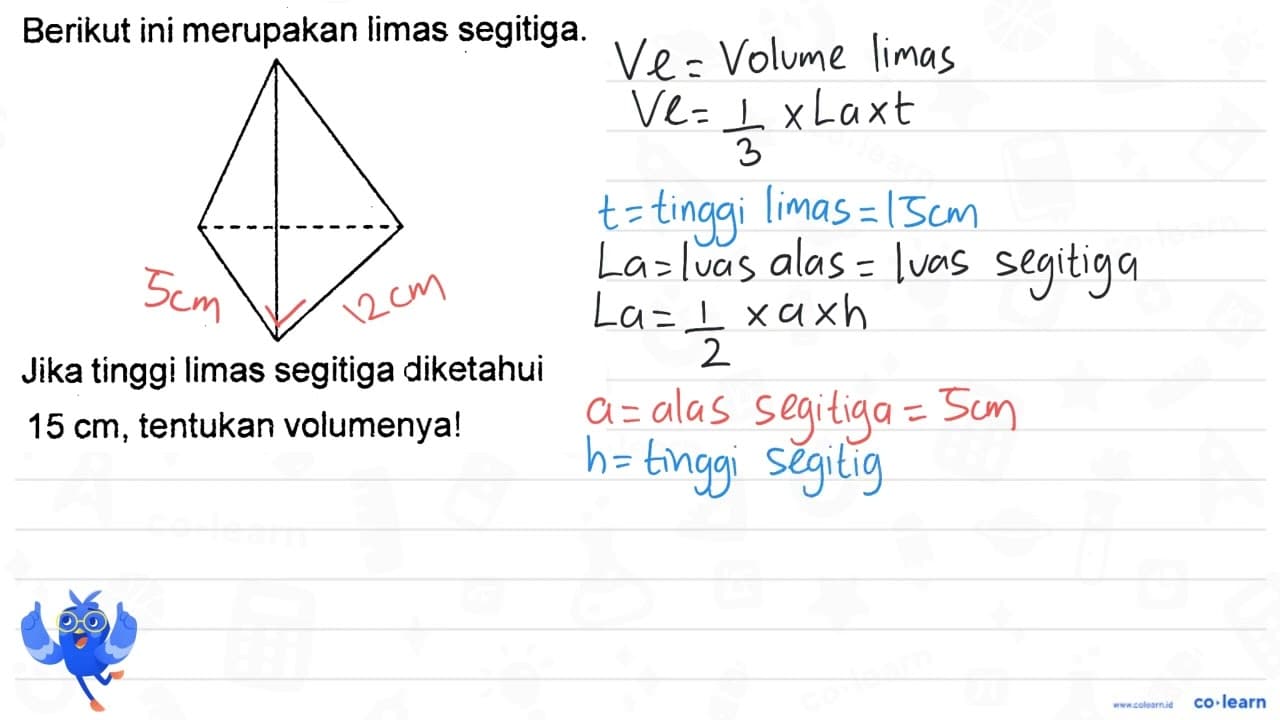 Berikut ini merupakan limas segitiga.
5cm
12cm
Jika tinggi limas segitiga diketahui
15 cm, tentukan volumenya!
Vl = Volume limas
Vl = 1/3 x La x t
t = tinggi limas = 15cm
La = luas alas = luas segitiga
La = 1/2 x a x h
a = alas segitiga = 5cm
h = tinggi segitig
www.colearn.id
co·learn